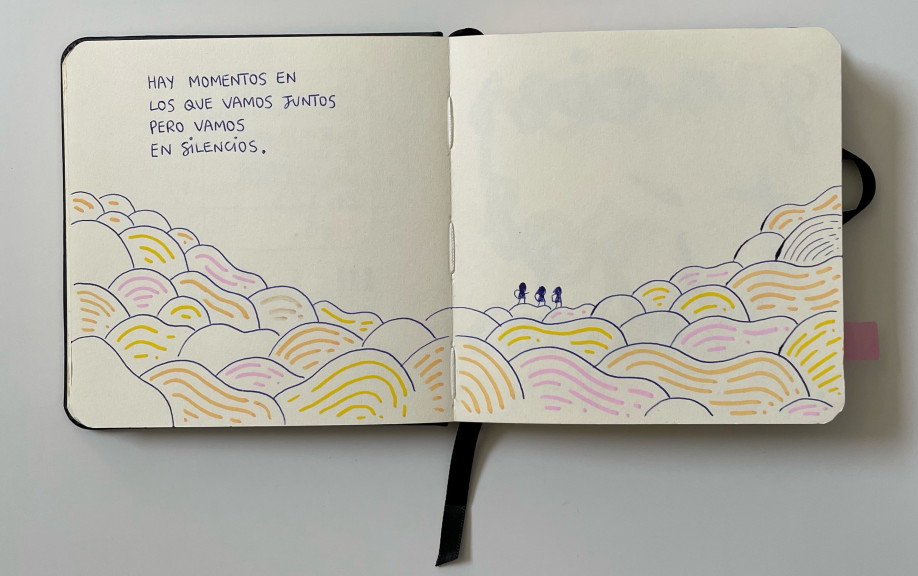 HAY MOMENTOS EN
LOS QUE VAMOS JUNTOS
PERO VAMOS
EN SILENCIOS.